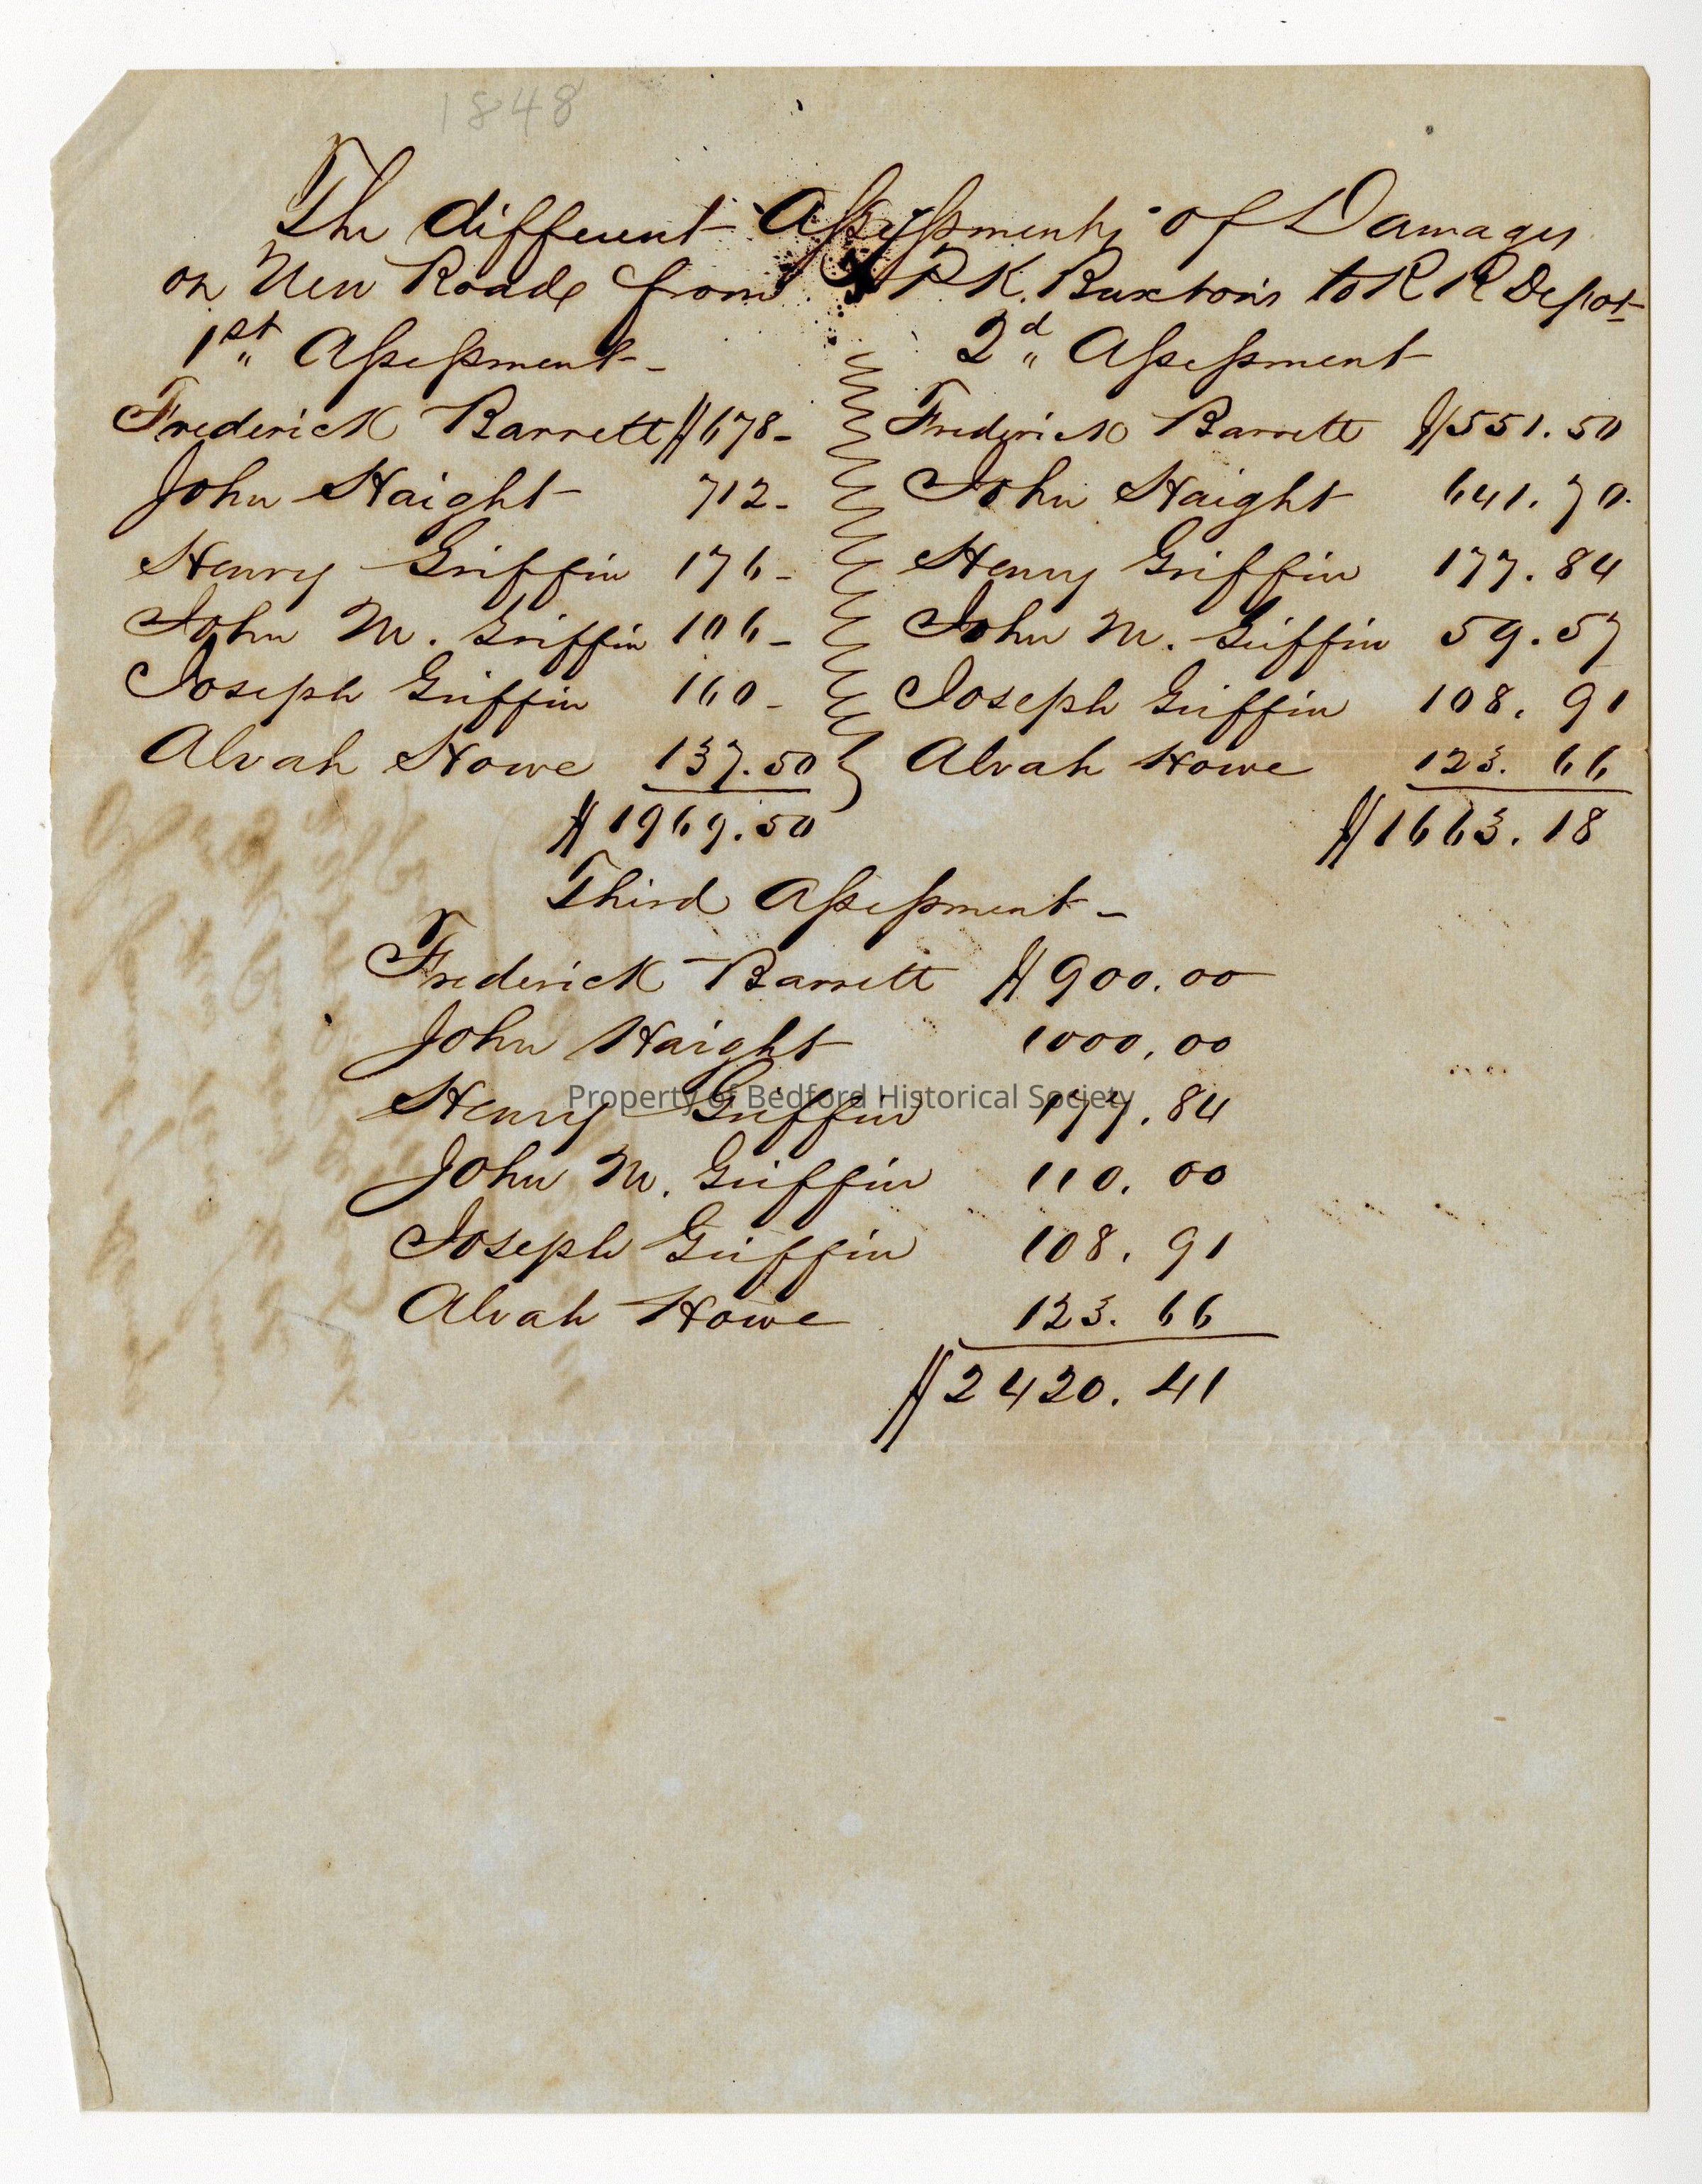 1848
The different Assessments of Damages
on New Road from P K. Buxton's to R R Depot
1st Assessment -
Frederick Barrett $678-
John Haight 712-
Henry Griffin 176-
John M. Griffin 106-
Joseph Griffin 160-
Alvah Howe 137.50
$1969.50
2d Assessment
Frederick Barrett $551.50
John Haight 641.70.
Henry Griffin 177.84
John M. Griffin 59.57
Joseph Griffin 108.91
Alvah Howe 123.66
$1663.18
Third Assessment -
Frederick Barrett $900.00
John Haight 1000.00
Henry Griffin 177.84
John M. Griffin 110.00
Joseph Griffin 108.91
Alvah Howe 123.66
$2420.41
Property of Bedford Historical Society